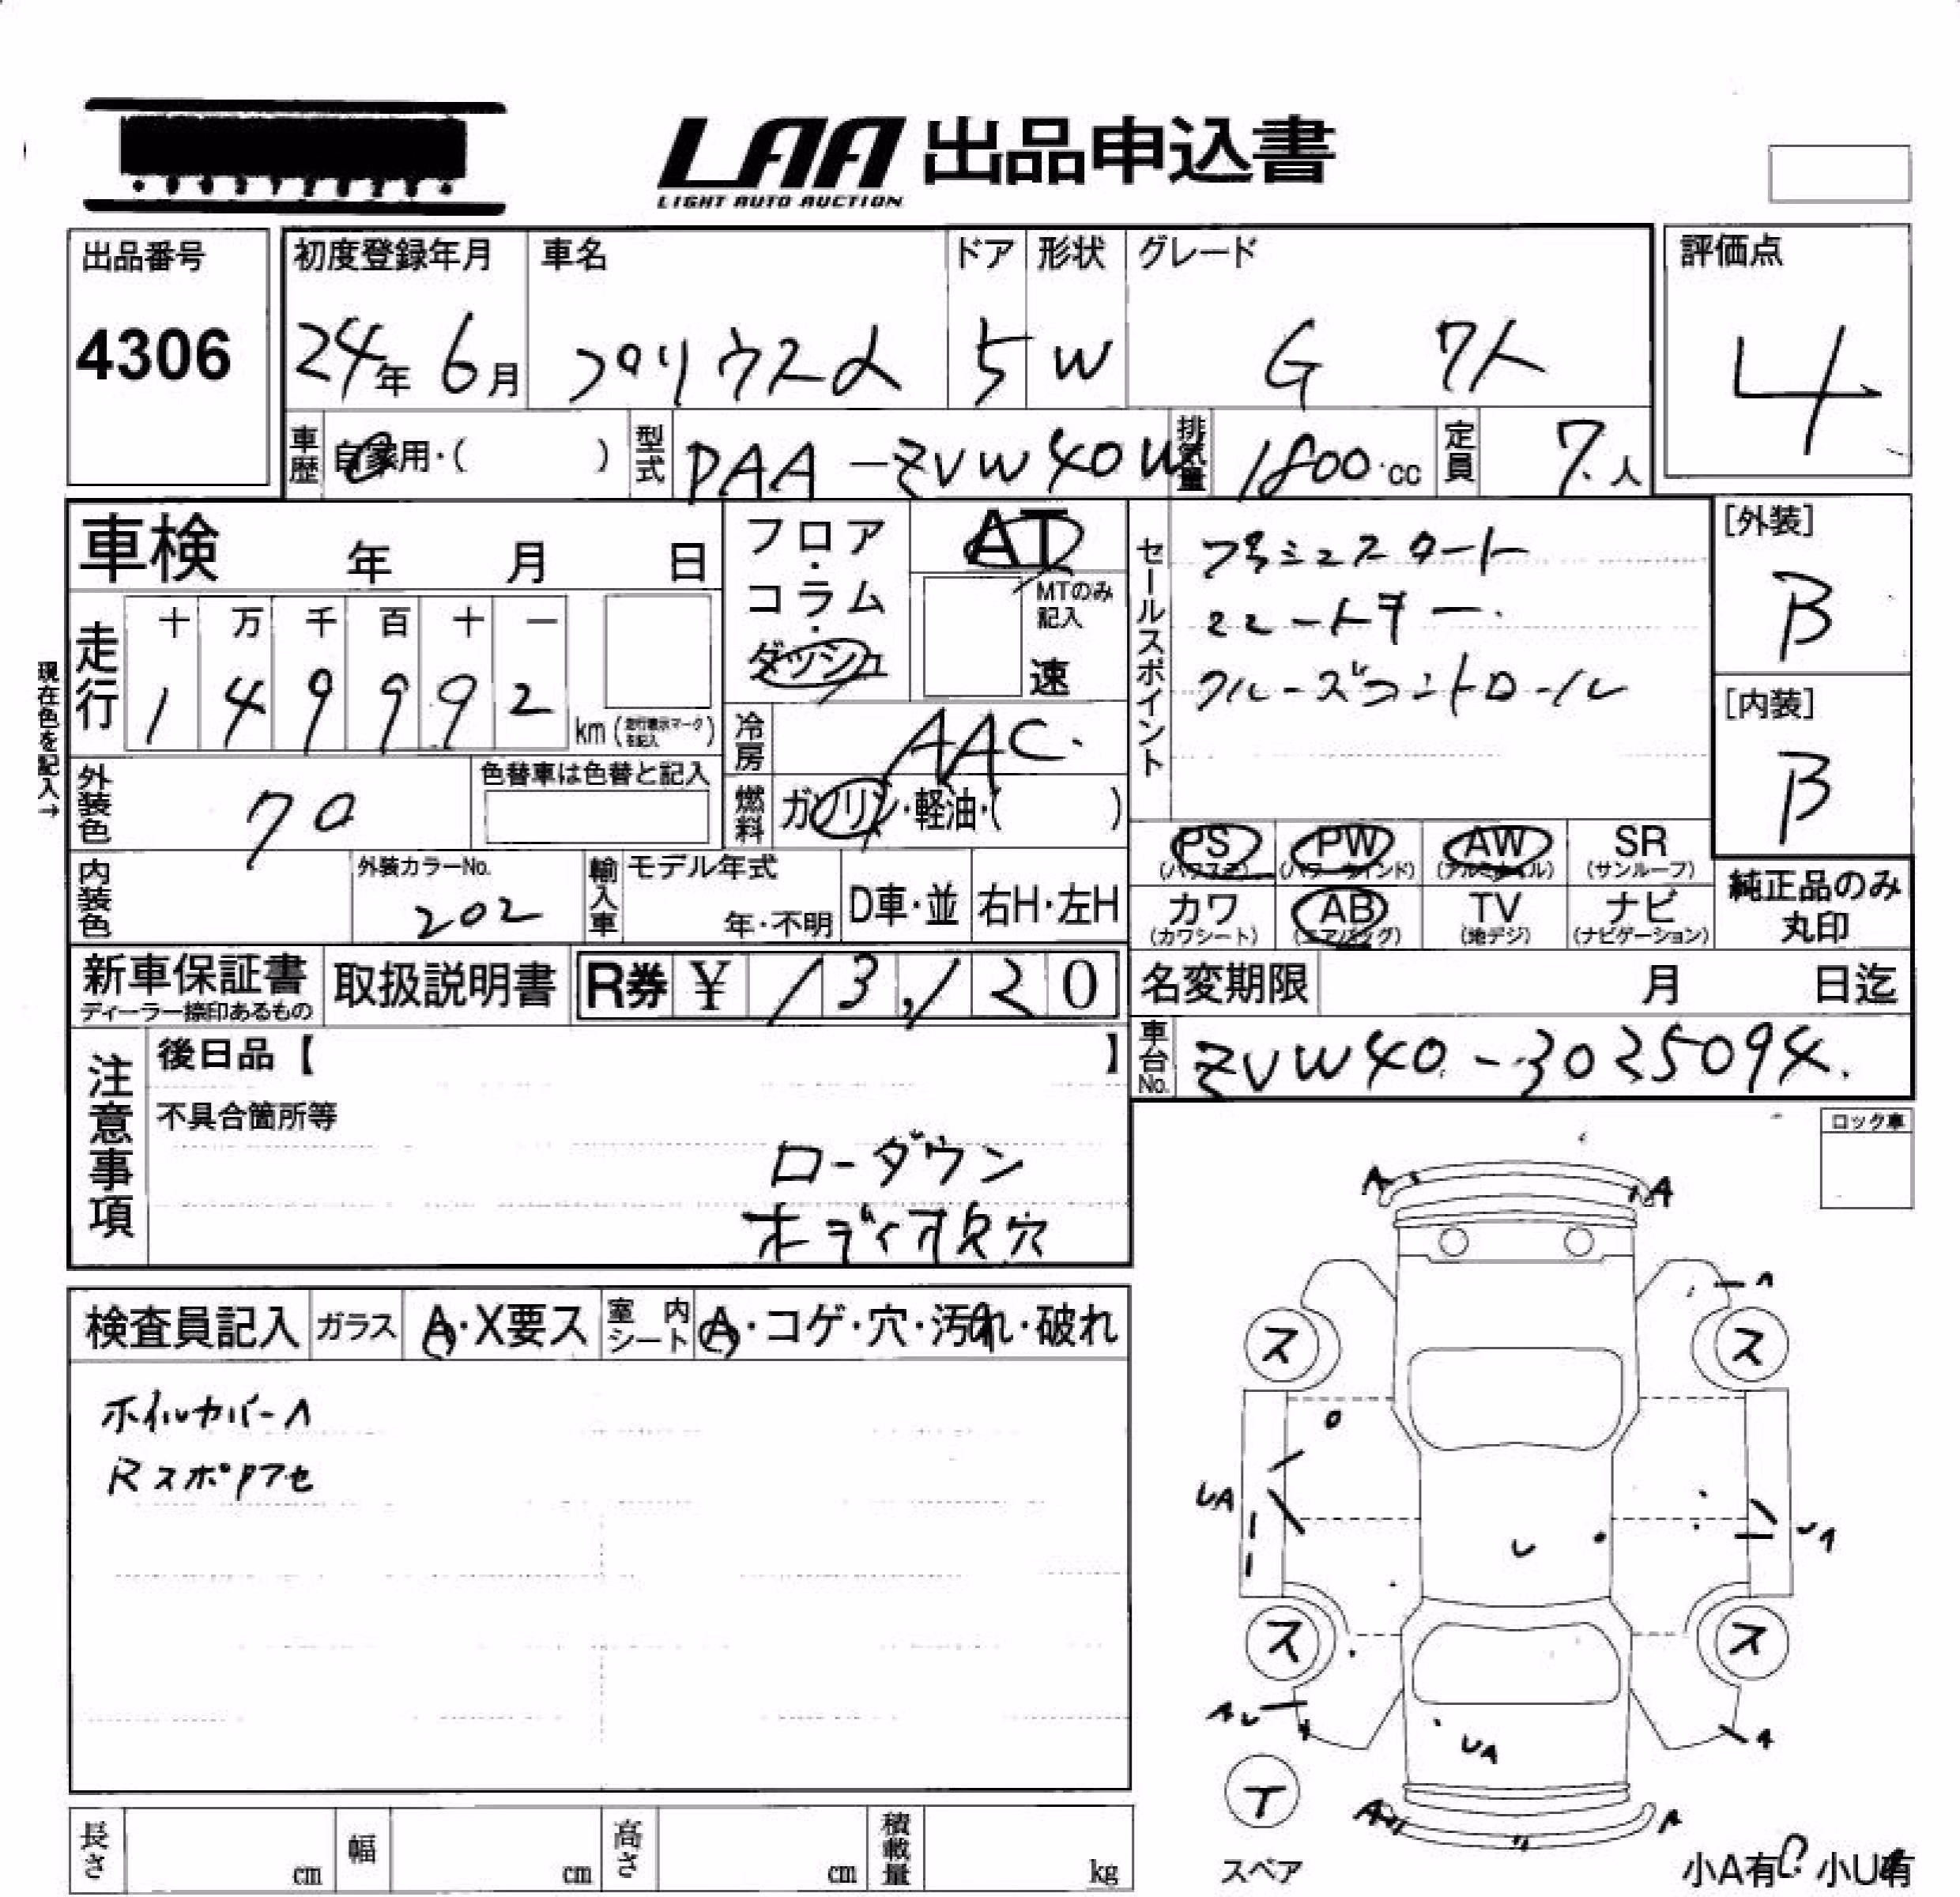 LAA 出品申込書
LIGHT AUTO AUCTION
出品番号
4306
初度登録年月
24年 6月
車名
プリウスα
ドア
5
形状
W
グレード
G 7人
評価点
4
車歴 自家用・( )
型式 DAA-ZVW40W
排気量 1800 cc
定員 7人
車検 年 月 日
フロア・コラム・ダッシュ
AT
MTのみ記入
速
セールスポイント
プッシュスタート
スマートキー
クルーズコントロール
[外装]
B
[内装]
B
現在色を記入→
走行 十 万 千 百 十 一
1 4 9 9 9 2
km (走行表示マークを記入)
冷房 AAC
外装色 クロ
色替車は色替と記入
燃料 ガソリン・軽油・( )
PS (パワステ)
PW (パワーウインド)
AW (アルミホイル)
SR (サンルーフ)
カワ (カワシート)
AB (エアバッグ)
TV (地デジ)
ナビ (ナビゲーション)
純正品のみ丸印
内装色
外装カラーNo.
202
輸入車
モデル年式
年・不明
D車・並
右H・左H
新車保証書
ディーラー捺印あるもの
取扱説明書
R券 ¥ 13,120
名変期限 月 日迄
車台No. ZVW40-3025094
注意事項
後日品【 】
不具合箇所等
ローダウン
ボディ
穴
ロック車
検査員記入
ガラス A・X要ス
室内シート A・コゲ・穴・汚れ・破れ
ホイルカバーA
Rスポ
アセ
A A
A
ス ス
UA UA
U
ス ス
AU
UA
A
T
A A
スペア
小A有 小U有
長さ cm
幅 cm
高さ cm
積載量 kg